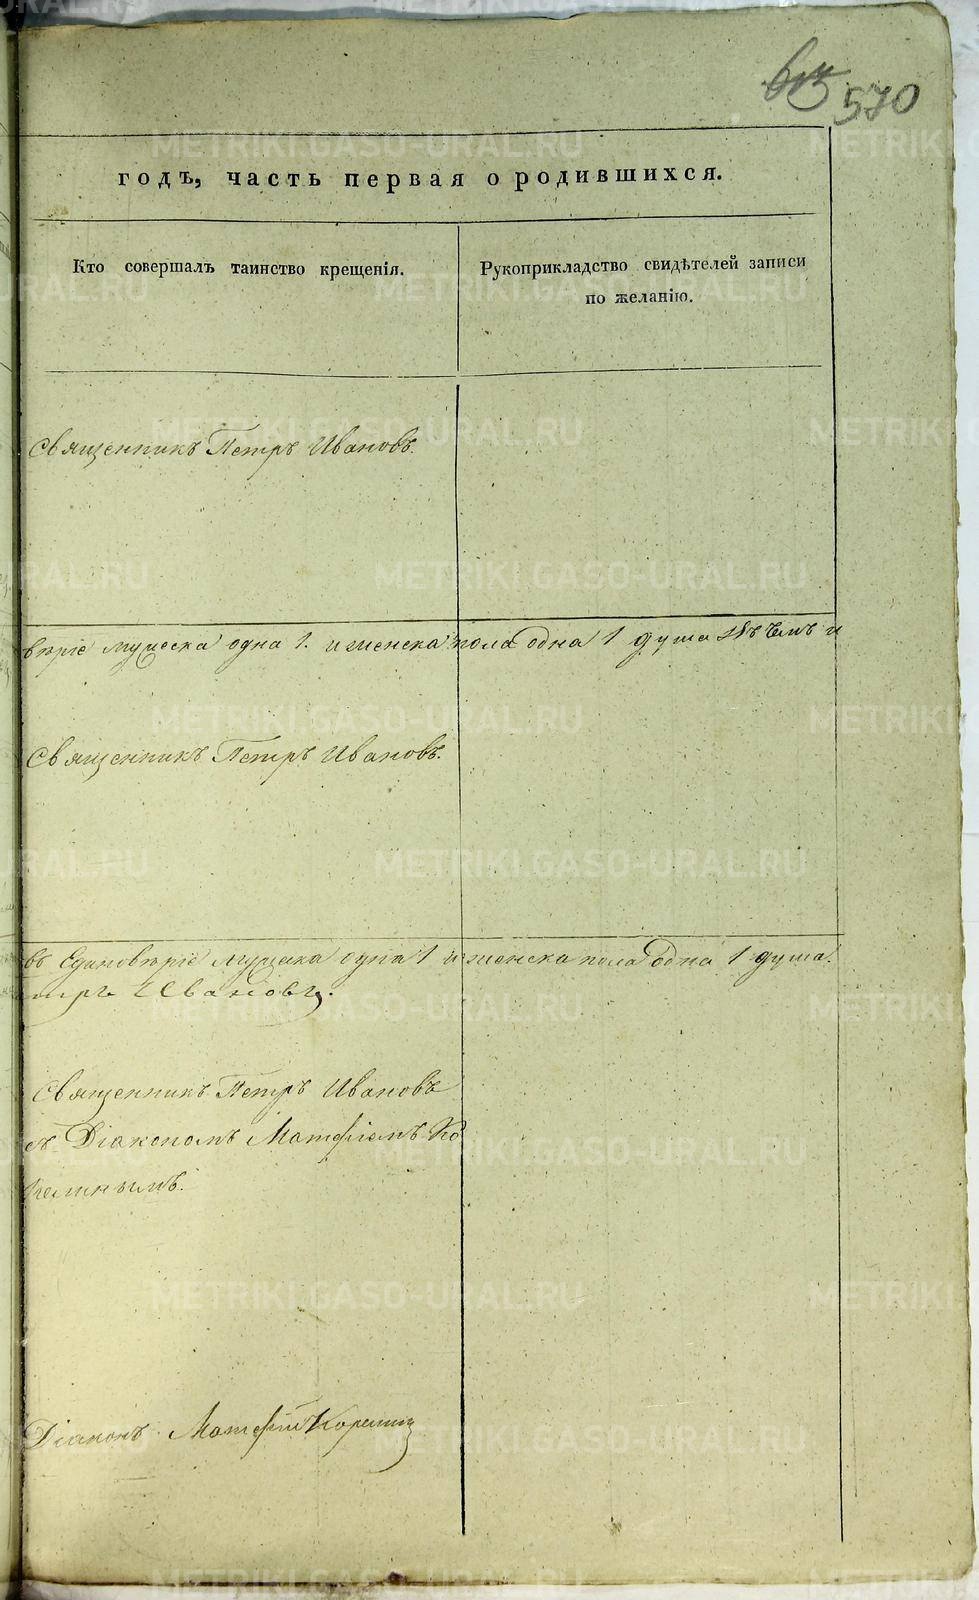 570
годъ, часть первая о родившихся.
Кто совершалъ таинство крещенія.
Рукоприкладство свидѣтелей записи
по желанію.
Священникъ Петръ Ивановъ.
вѣріе мужеска одна 1. и женска пола одна 1 душа
Священникъ Петръ Ивановъ.
въ Единовѣріе мужска одна 1 и женска пола одна 1 душа.
Ивановъ.
Священникъ Петръ Ивановъ
съ Діакономъ Матфіемъ Ко
Діаконъ Матфій
METRIKI.GASO-URAL.RU